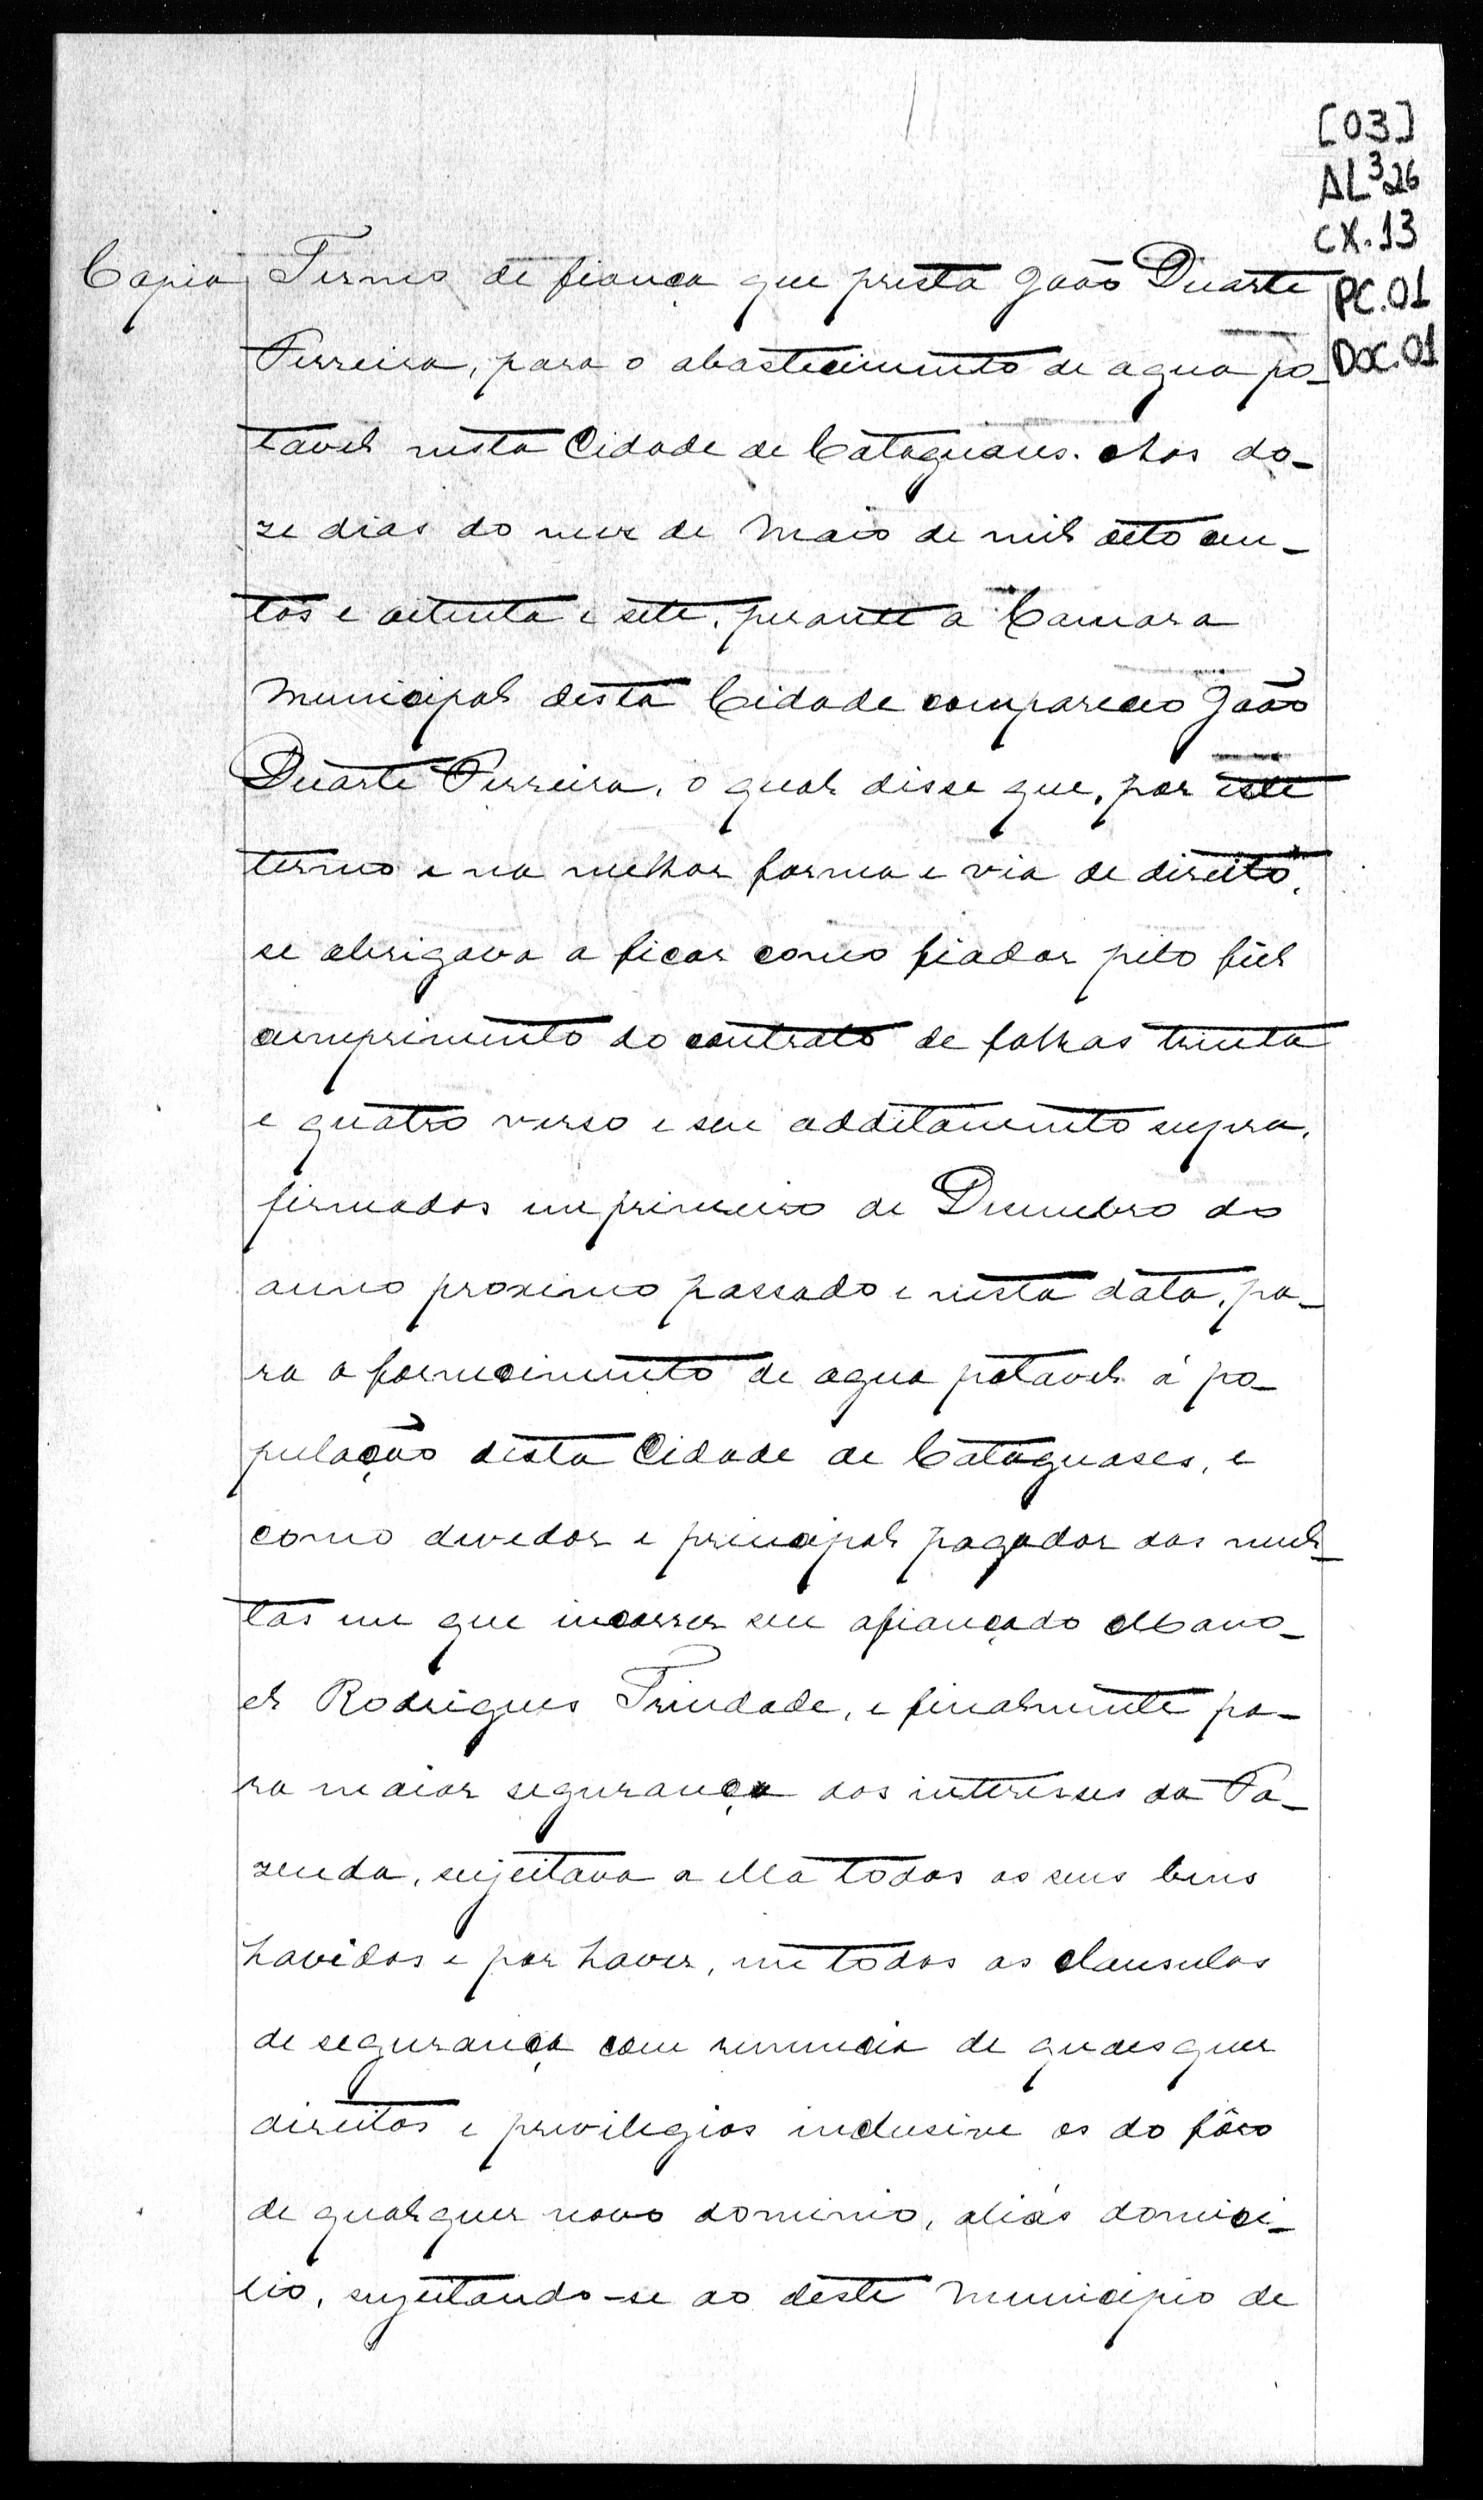 [03]
AL³26
CX.13
PC.01
DOC.01
Copia Termo de fiança que presta João Duarte
Ferreira, para o abastecimento de agua po-
tavel nesta Cidade de Cataguases. Aos do-
ze dias do mez de Maio de mil oito cen-
tos e oitenta e sete, perante a Camara
Municipal desta Cidade compareceo João
Duarte Ferreira, o qual disse que, por este
termo e na melhor forma e via de direito,
se obrigava a ficar como fiador pelo fiel
cumprimento do contrato de folhas trinta
e quatro verso e seu additamento supra,
firmados em primeiro de Desembro do
anno proximo passado e nesta data, pa-
ra o fornecimento de agua potavel á po-
pulação desta Cidade de Cataguases, e
como devedor e principal pagador das mul-
tas em que incorrer seu afiançado Mano-
el Rodrigues Trindade, e finalmente pa-
ra maior segurança dos interesses da Fa-
zenda, sujeitava a ella todos os seus bens
havidos e por haver, em todas as clausulas
de segurança com renuncia de quaesquer
direitos e privilegios inclusive os do fôro
de qualquer novo dominio, aliás domici-
lio, sujeitando-se ao deste Municipio de